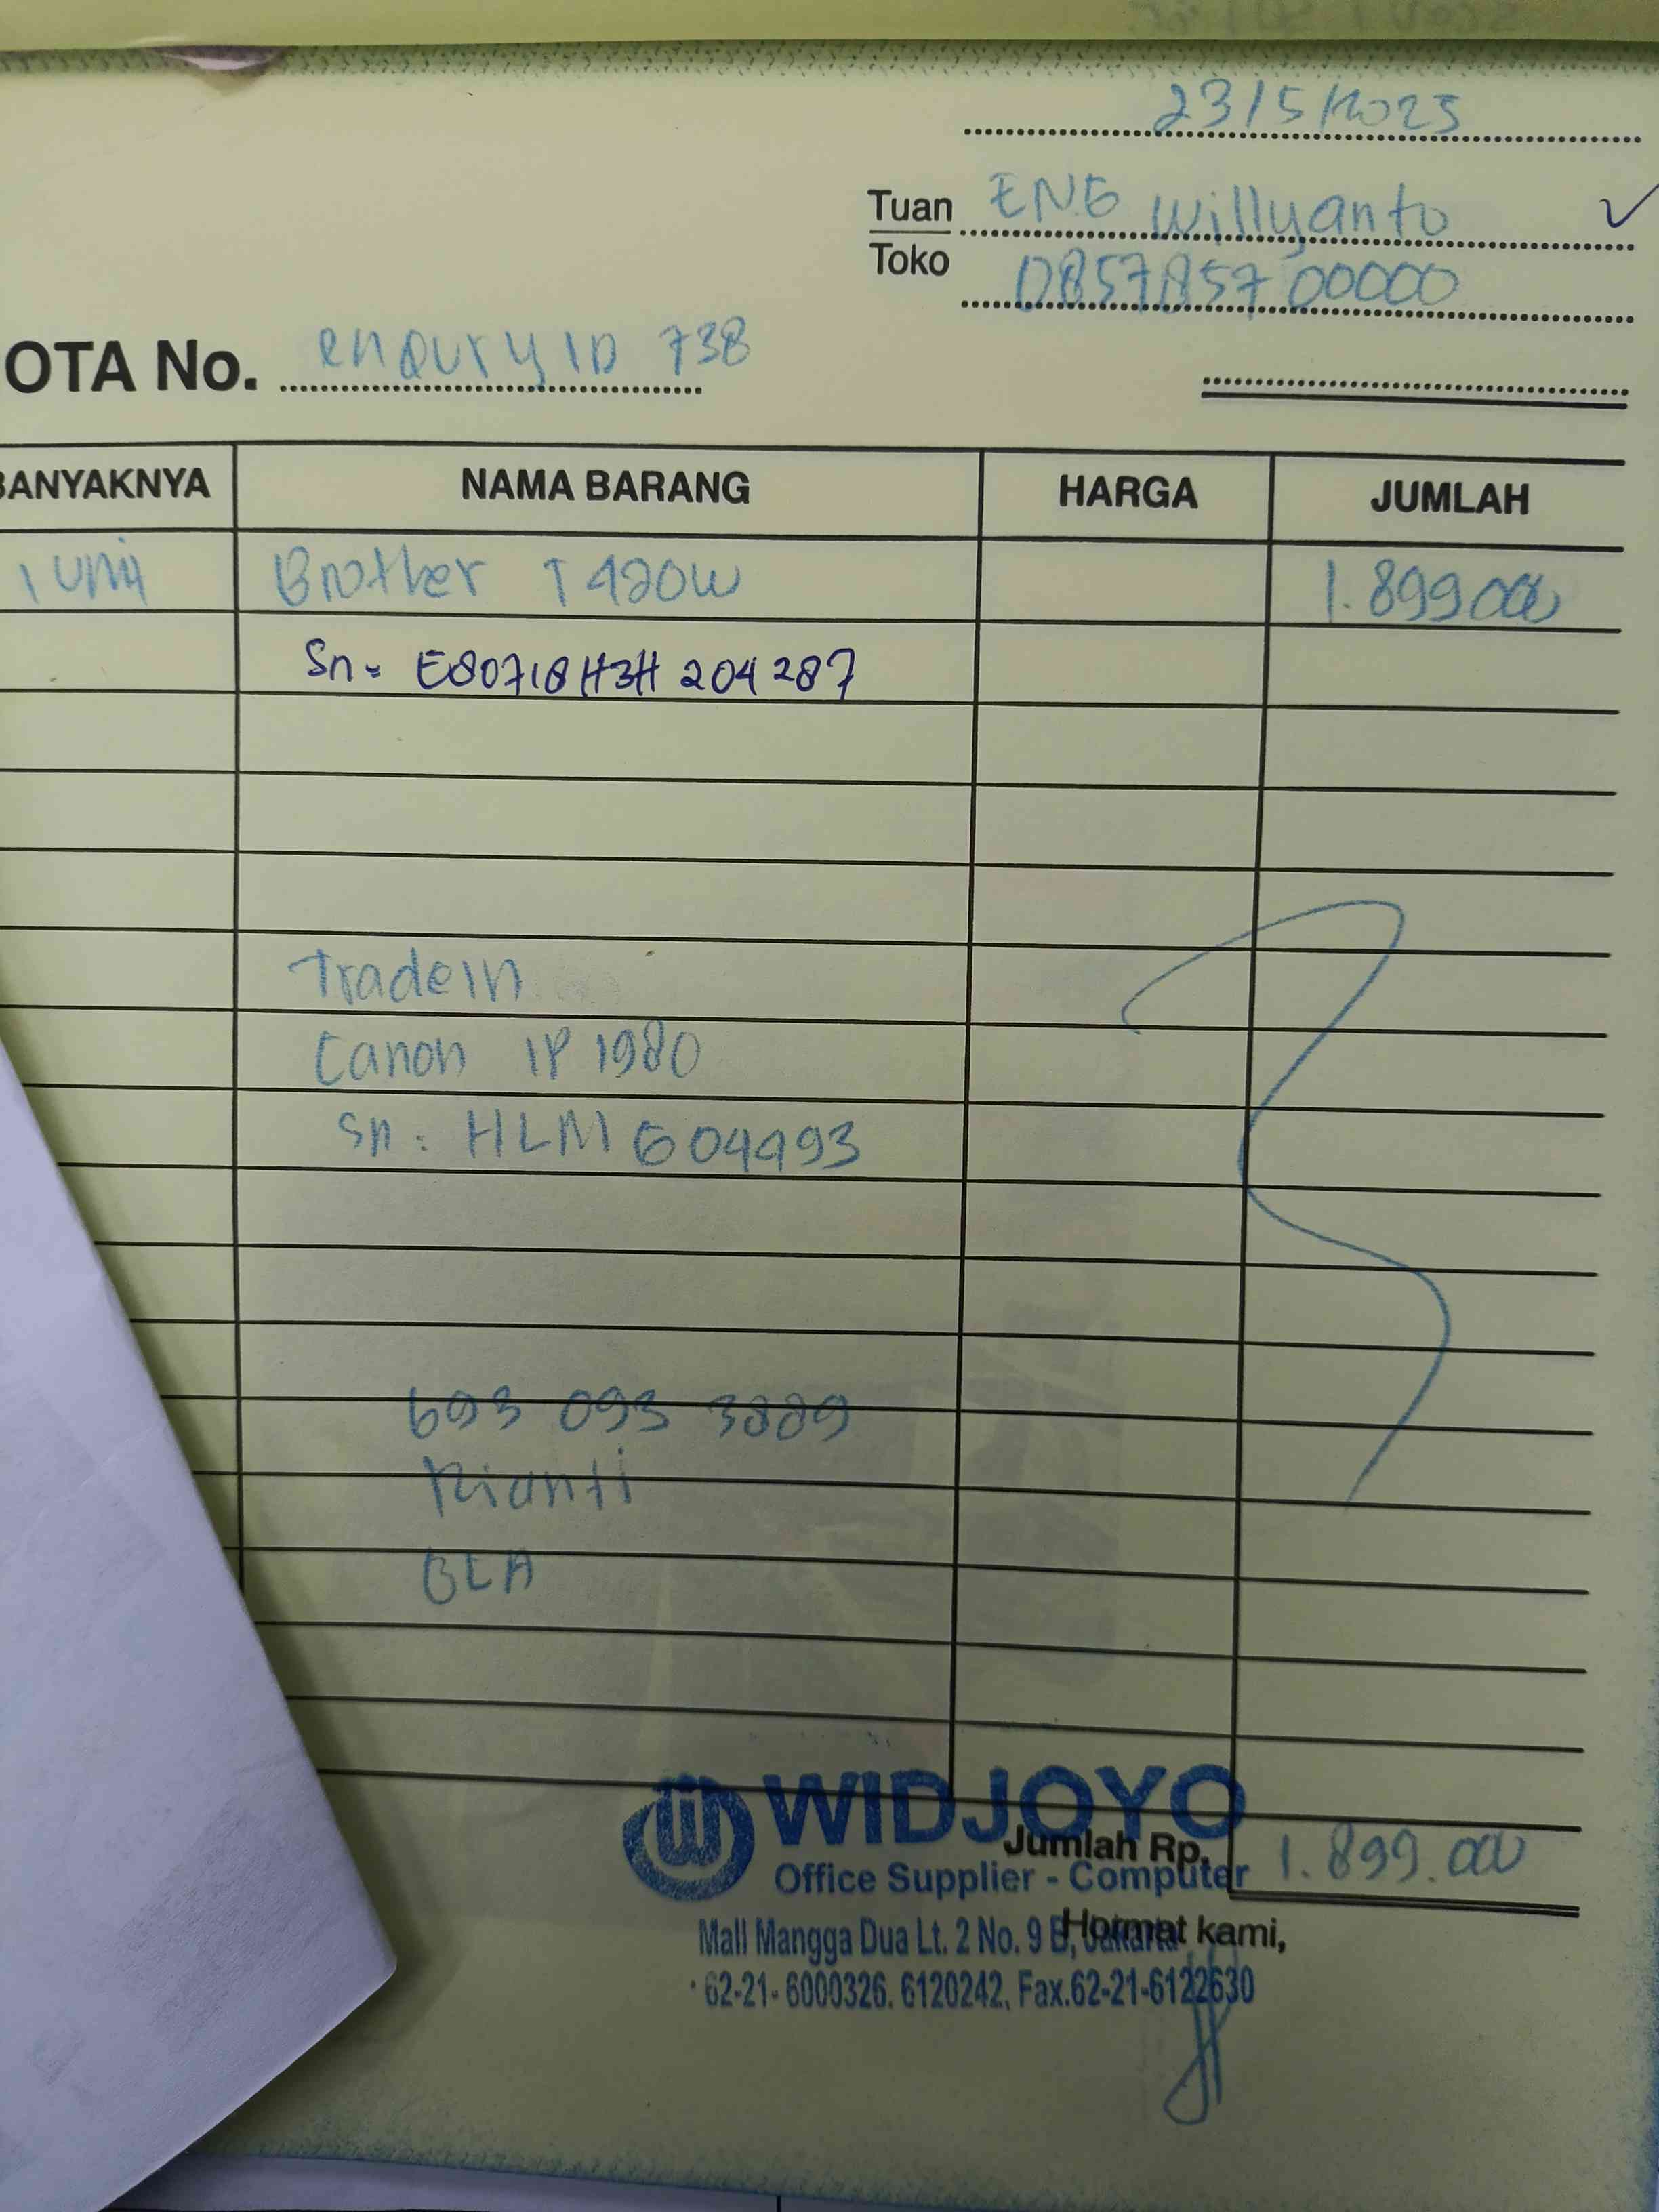 23/5/2025
Tuan ENG Willyanto
Toko 0857857 00000
OTA No. enqury ID 738
BANYAKNYA NAMA BARANG HARGA JUMLAH
1 unit Brother T420W 1.899.000
Sn: E80718H3H204287
Tradein
Canon IP 1980
Sn: HLM604993
693 093 3889
Rianti
BCA
WIDJOYO
Jumlah Rp. 1.899.000
Office Supplier - Computer
Hormat kami,
Mall Mangga Dua Lt. 2 No. 9 B, Jakarta
62-21- 6000326. 6120242, Fax.62-21-6122630